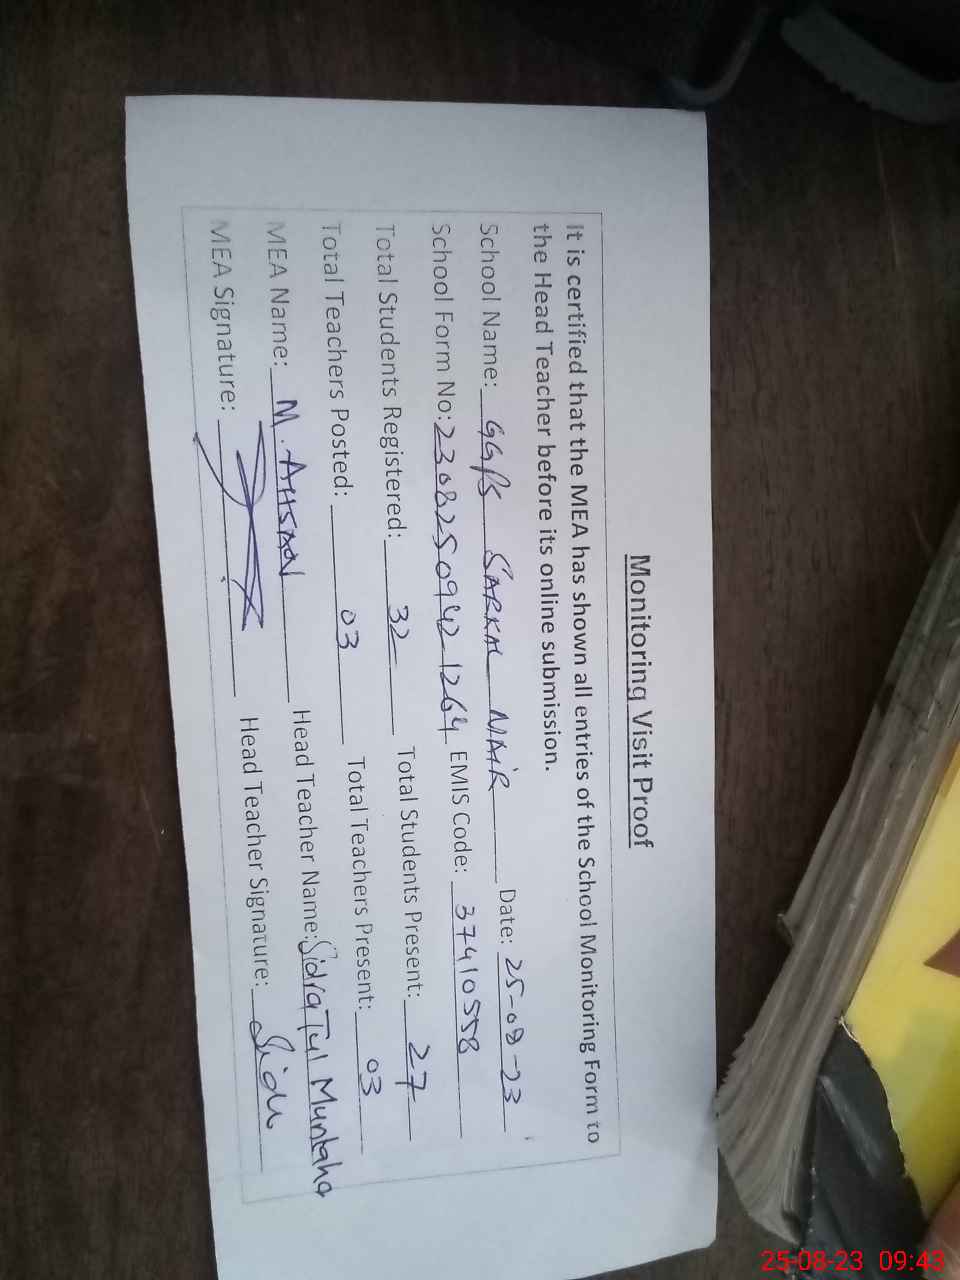 Monitoring Visit Proof
It is certified that the MEA has shown all entries of the School Monitoring Form to
the Head Teacher before its online submission.
School Name: GGPS SARKAL NAIR Date: 25-08-23
School Form No: 23082509421264 EMIS Code: 37410558
Total Students Registered: 32 Total Students Present: 27
Total Teachers Posted: 03 Total Teachers Present: 03
MEA Name: M. AHSAN Head Teacher Name: Sidra Tul Muntaha
MEA Signature: Head Teacher Signature: 
25-08-23 09:43